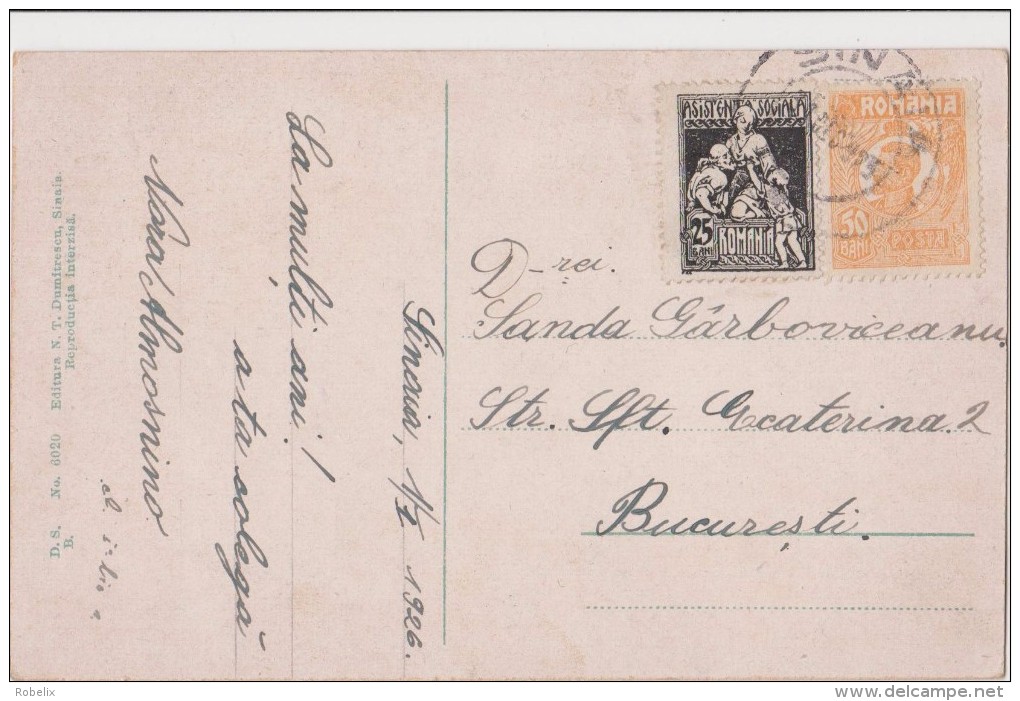 La mulți ani!
a ta colegă
Nora Almosnino
Sinaia, 1/I 1926.
D-rei.
Sanda Gârboviceanu.
Str. Sft. Ecaterina 2
București.
ASISTENȚA SOCIALĂ
25
BANI
ROMANIA
ROMANIA
50
BANI
POSTA
SIN
D. S. No. 6020 Editura N. T. Dumitrescu, Sinaia.
B. Reproducția interzisă.
Robelix
delcampe.net